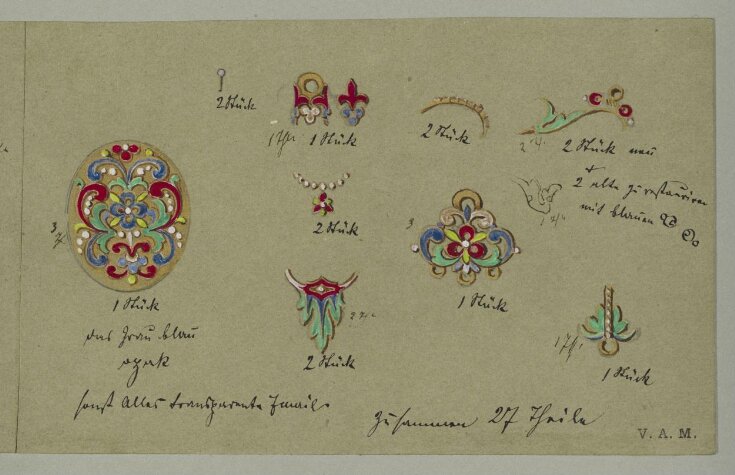 2 Stück
1 Stück
2 Stück
2 Stück neu
+
2 alte zu restauriren
mit blauen
2 Stück
3
3
1 Stück
1 Stück
das Grau blau
opak
2 Stück
1 Stück
sonst Alles transparente Email.
Zusammen 27 Theile
V. A. M.